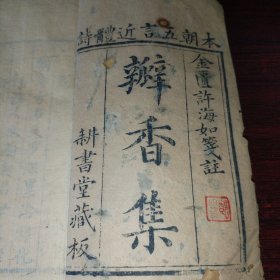 本朝五言近體詩
金匱許海如箋註
瓣香集
耕書堂藏板